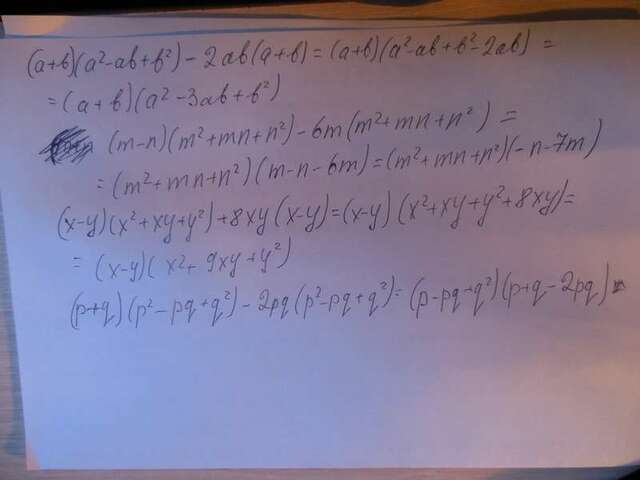 (a+b)(a²-ab+b²) - 2ab(a+b) = (a+b)(a²-ab+b²-2ab) =
= (a+b)(a²-3ab+b²)
(m-n)(m²+mn+n²) - 6m(m²+mn+n²) =
= (m²+mn+n²)(m-n-6m) = (m²+mn+n²)(-n-7m)
(x-y)(x²+xy+y²) + 8xy(x-y) = (x-y)(x²+xy+y²+8xy) =
= (x-y)(x²+9xy+y²)
(p+q)(p²-pq+q²) - 2pq(p²-pq+q²) = (p-pq+q²)(p+q-2pq)